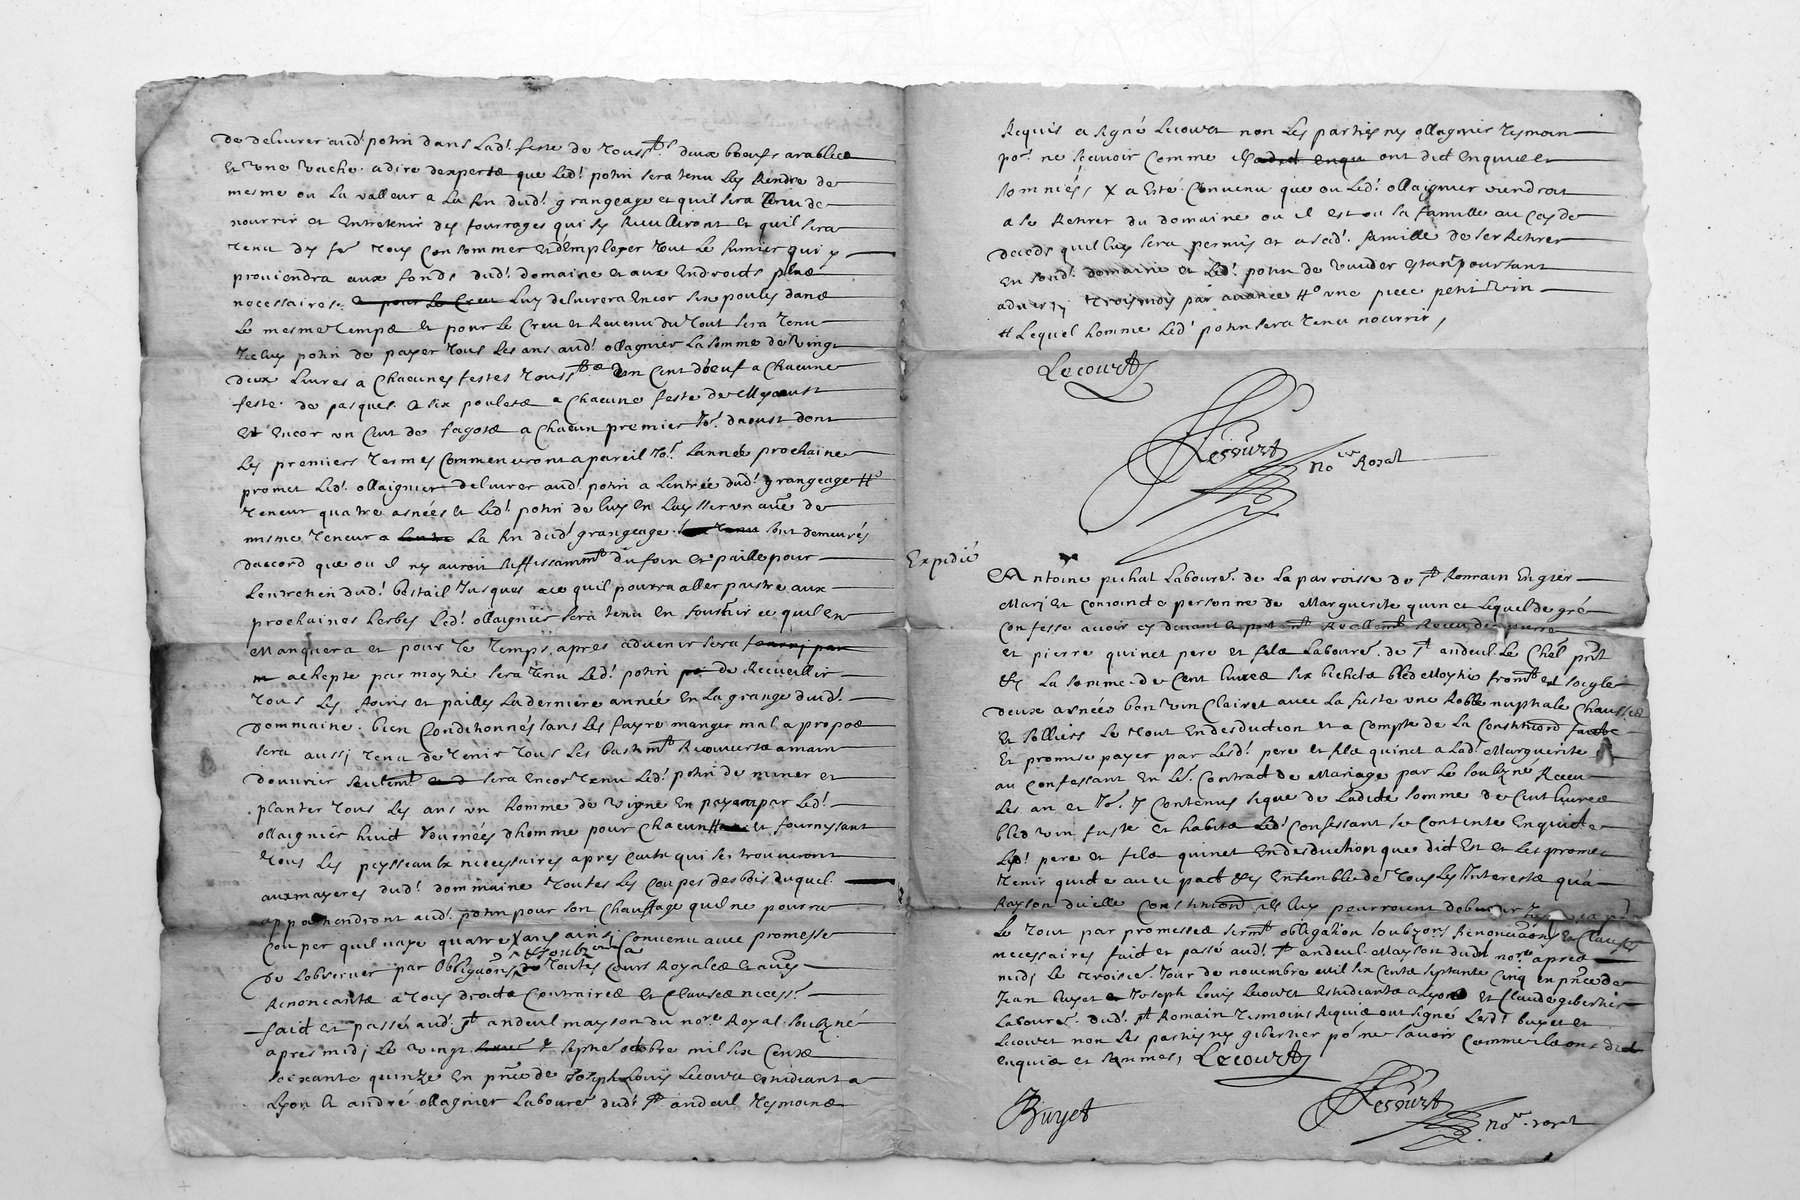 de delivrer aud.t potin dans lad.t feste de Touss.ts deux boeufs arables
et une vache a dire dexpertz que led.t potin sera tenu les Rendre de
mesme ou la valleur a la fin dud.t grangeage et quil sera tenu de
nourrir et entretenir des fourrages qui sy Recullieront et quil sera
tenu dy fe tous consommer et d'employer tout le fumier qui y
proviendra aux fonds dud.t domaine et aux endroits plus
necessaires luy delivrera encor six poules dans
le mesme tempz et pour le creu et Revenu du tout sera tenu
Icelluy potin de payer tous les ans aud.t ollagnier la somme de vingt
deux livres a chacunes festes Touss.ts un cent d'oeuf a chacune
feste de pasques six pouletz a chacune feste de my aoust
et encor un cent de fagotz a chacun premier Jo.r daoust dont
les premiers termes commenceront a pareil Jo.r lannée prochaine
promet led.t ollaignier delivrer aud.t potin a lentrée dud.t grangeage #
teneur quatre asnées et led.t potin de luy en laysser un au.e de
mesme teneur a la fin dud.t grangeage sont demeurés
daccord que ou il ny auroit suffisamm.t du foin et paille pour
lentretien dud.t bestail Jusques a ce quil pourra aller paistre aux
prochaines herbes led.t ollaignier sera tenu en fournir ce quil en
Manquera et pour le temps apres advenir sera
achepté par moytié sera tenu led.t potin de Recueillir
tous les foins et pailles la derniere année en la grange dud.t
dommaine bien conditionnés sans les fayre manger mal a propoz
sera aussi tenu de tenir tous les bastim.ts Recouvertz a main
douvrier sera encor tenu led.t potin de miner et
planter tous les ans un homme de vigne en payant par led.t
ollaignier huict Journées dhomme pour chacun et fournissant
tous les peysseaulx necessaires apres ceulx qui se trouveront
aux mayeres dud.t dommaine toutes les coupes des bois duquel
appartiendront aud.t potin pour son chauffage quil ne pourra
couper quil naye quatre ans ainsi convenu avec promesse
de lobserver par obligaons de toutes cours Royales et au.es
Renoncantz a tous droictz contraires et clauses necess.es
faict et passé aud.t s.t andeul mayson du no.re Royal soubzné
apres midi le vingt sept.me octobre mil six centz
soixante quinze en p.nce de Joseph Louis Lecourt estudiant a
Lyon et andré ollagnier laboure.r dud.t s.t andeul tesmoins
Requis a signé Lecourt non les parties ny ollagnier tesmoin
po.r ne scavoir comme ont dict enquis et
sommés, X a esté convenu que ou led.t ollaignier viendroit
a se Retirer du domaine ou il est ou sa famille au cas de
deceds quil luy sera permis et a sad.t famille de se Retirer
en sond.t domaine et led.t potin de vuider estant pourtant
adverty trois mois par avance # une piece petit vin
# Lequel homme led.t potin sera tenu nourrir,
Lecourt
Lecourt no.re Royal
Expedié
Antoine pichat laboure.r de la parroisse de s.t Romain en gier
Mari et conjoincte personne de Marguerite quinet lequel de gré
confesse avoir
et pierre quinet pere et filz laboure.rs de s.t andeul le Ch.el p.nt
la somme de cent livres six bichetz bled moytié from.t et soigle
deux asnées bon vin clairet avec la fuste une Robbe nuptiale chausses
et solliers le tout en desduction et a compte de la constitu.on faicte
et promise payer par lesd.ts pere et filz quinet a lad.te Marguerite
au confessant en le contract de Mariage par le soubzné Receu
les an et Jo.r y contenus sique de ladicte somme de cent livres
bled vin fuste et habitz led.t confessant se contente en quicte
led.t pere et filz quinet en desduction que dict est et les promet
tenir quicte avec pact ensemble de tous les Interestz qu'a
Rayson dicelle constitu.on ils luy pourroient debvoir
le tout par promesses serm.t obligation soubz.ons Renonciaons et clauses
necessaires faict et passé aud.t s.t andeul Mayson dudt no.re apres
midi le troisie.e Jour de novembre mil six centz septante cinq en p.nce de
Jean buyet et Joseph Louis Lecourt estudiantz a Lyon et Claude gibertier
laboure.r dud.t s.t Romain tesmoins Requis ont signé lesd.ts buyet et
Lecourt non les parties ny gibertier po.r ne scavoir comme ils ont dict
enquis et sommes, Lecourt
Buyet
Lecourt no.re royal